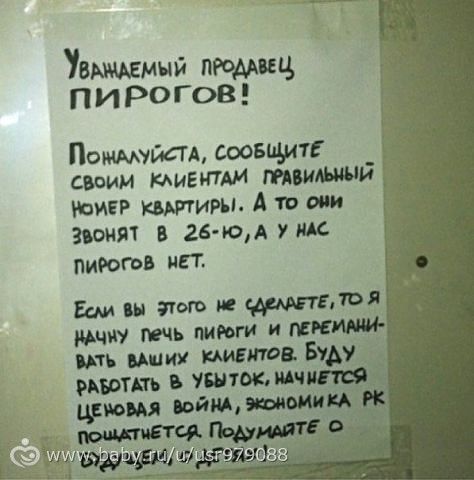 Уважаемый продавец
ПИРОГОВ!
Пожалуйста, сообщите
своим клиентам правильный
номер квартиры. А то они
звонят в 26-ю, а у нас
пирогов нет.
Если вы этого не сделаете, то я
начну печь пироги и перемани-
вать ваших клиентов. Буду
работать в убыток, начнется
ценовая война, экономика РК
пошатнется. Подумайте о
www.baby.ru/u/usr979088